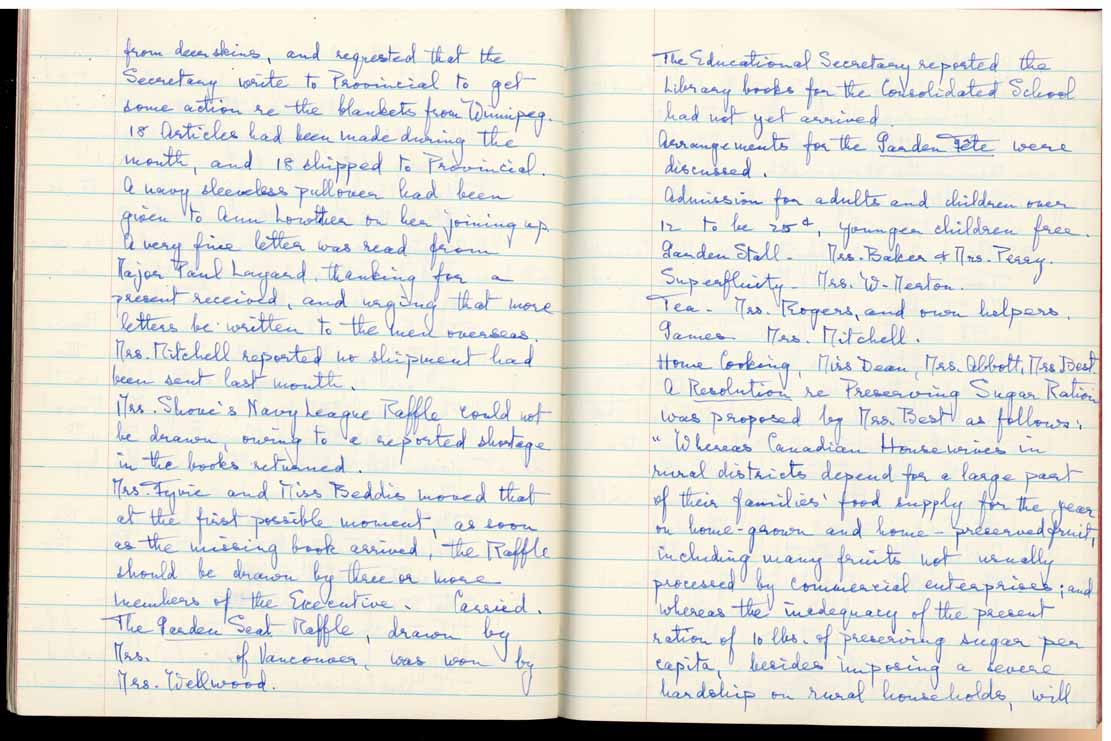 from deerskins, and requested that the
Secretary write to Provincial to get
some action re the blankets from Winnipeg.
18 Articles had been made during the
month, and 18 shipped to Provincial.
A navy sleeveless pullover had been
given to Ann Lowther on her joining up.
A very fine letter was read from
Major Paul Layard, thanking for a
present received, and urging that more
letters be written to the men overseas.
Mrs. Mitchell reported no shipment had
been sent last month.
Mrs. Shove's Navy League Raffle could not
be drawn, owing to a reported shortage
in the books returned.
Mrs. Fyvie and Miss Beddis moved that
at the first possible moment, as soon
as the missing book arrived, the Raffle
should be drawn by three or more
members of the Executive. Carried.
The Garden Seat Raffle, drawn by
Mrs. of Vancouver, was won by
Mrs. Wellwood.
The Educational Secretary reported the
Library books for the Consolidated School
had not yet arrived.
Arrangements for the Garden Fête were
discussed.
Admission for adults and children over
12 to be 25¢, younger children free.
Garden Stall - Mrs. Baker & Mrs. Perry.
Superfluity - Mrs. W. Norton.
Tea - Mrs. Rogers, and own helpers.
Games Mrs. Mitchell.
Home Cooking, Miss Dean, Mrs. Abbott, Mrs Best.
A Resolution re Preserving Sugar Ration
was proposed by Mrs. Best as follows:
"Whereas Canadian Housewives in
rural districts depend for a large part
of their families' food supply for the year
on home-grown and home-preserved fruit,
including many fruits not usually
processed by commercial enterprises; and
whereas the inadequacy of the present
ration of 10 lbs. of preserving sugar per
capita, besides imposing a severe
hardship on rural households, will